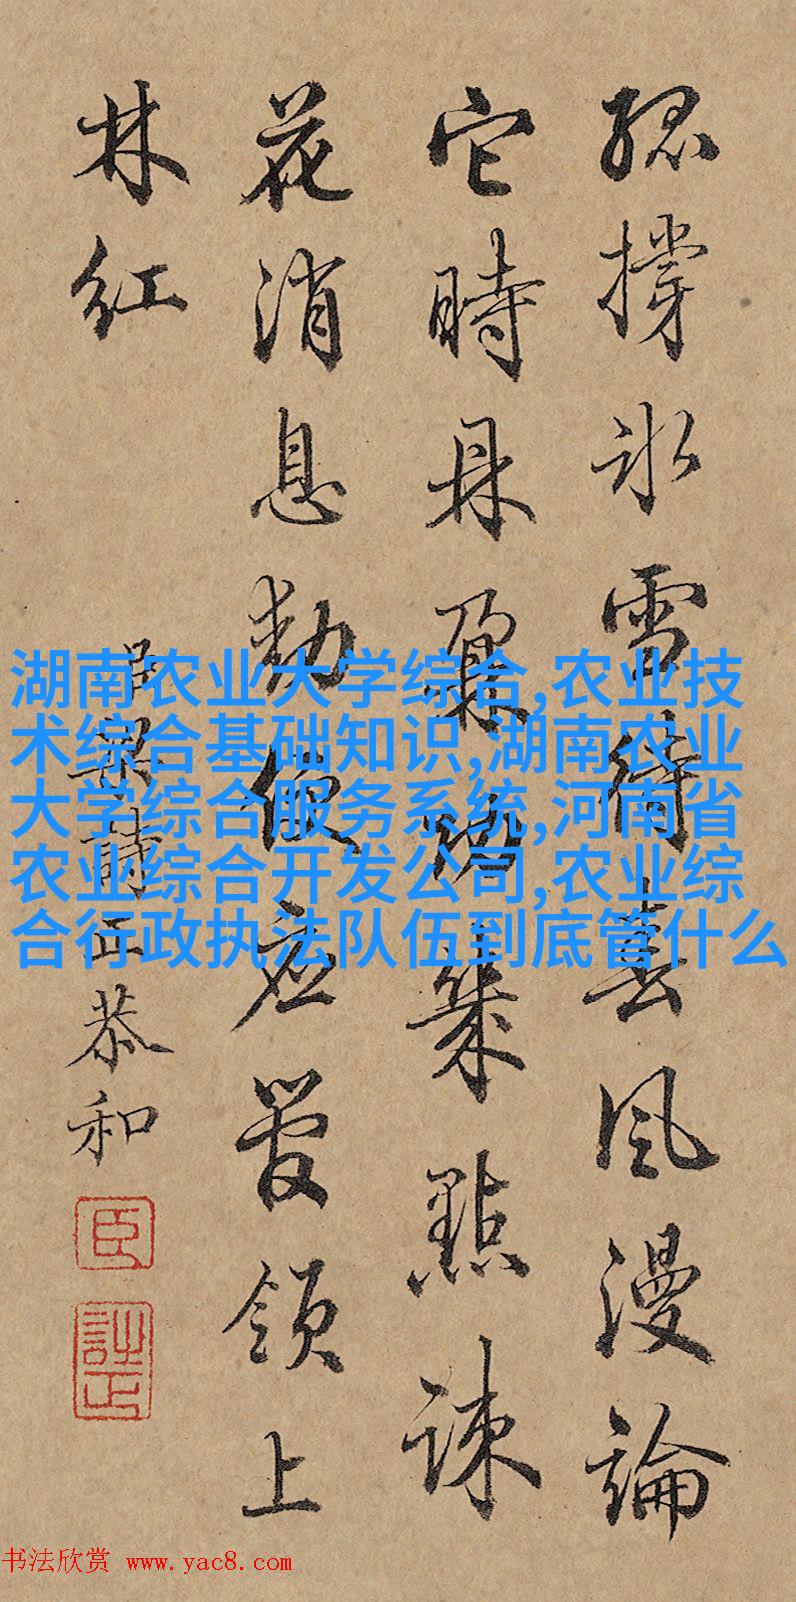 孤撐冰雪待春風漫論
它時鼎鼐功幾點疎
花消息動便應管領上
林紅
臣梁詩正恭和
臣
詩正
湖南农业大学综合,农业技
术综合基础知识,湖南农业
大学综合服务系统,河南省
农业综合开发公司,农业综
合行政执法队伍到底管什么
书法欣赏 www.yac8.com